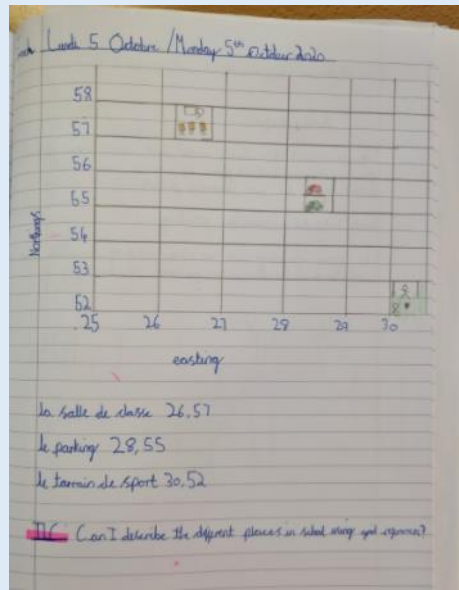 Lundi 5 Octobre / Monday 5th October 2020
58
57
56
55
54
53
52
Northings
25 26 27 28 29 30
easting
la salle de classe 26,57
le parking 28,55
le terrain de sport 30,52
Can I describe the different places in school using grid references?